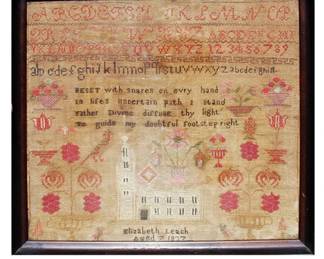 ABCDEFGHIJKLMNOP
UVWXYZ123456789
abcdefghijklmnopqrstuvwxyz abcdefgh
BESET with snares on evry hand
in lifes uncertain path i stand
father Divine diffuse thy light
to guide my doubtful footstep right
Elizabeth Leach
Aged 7 1877